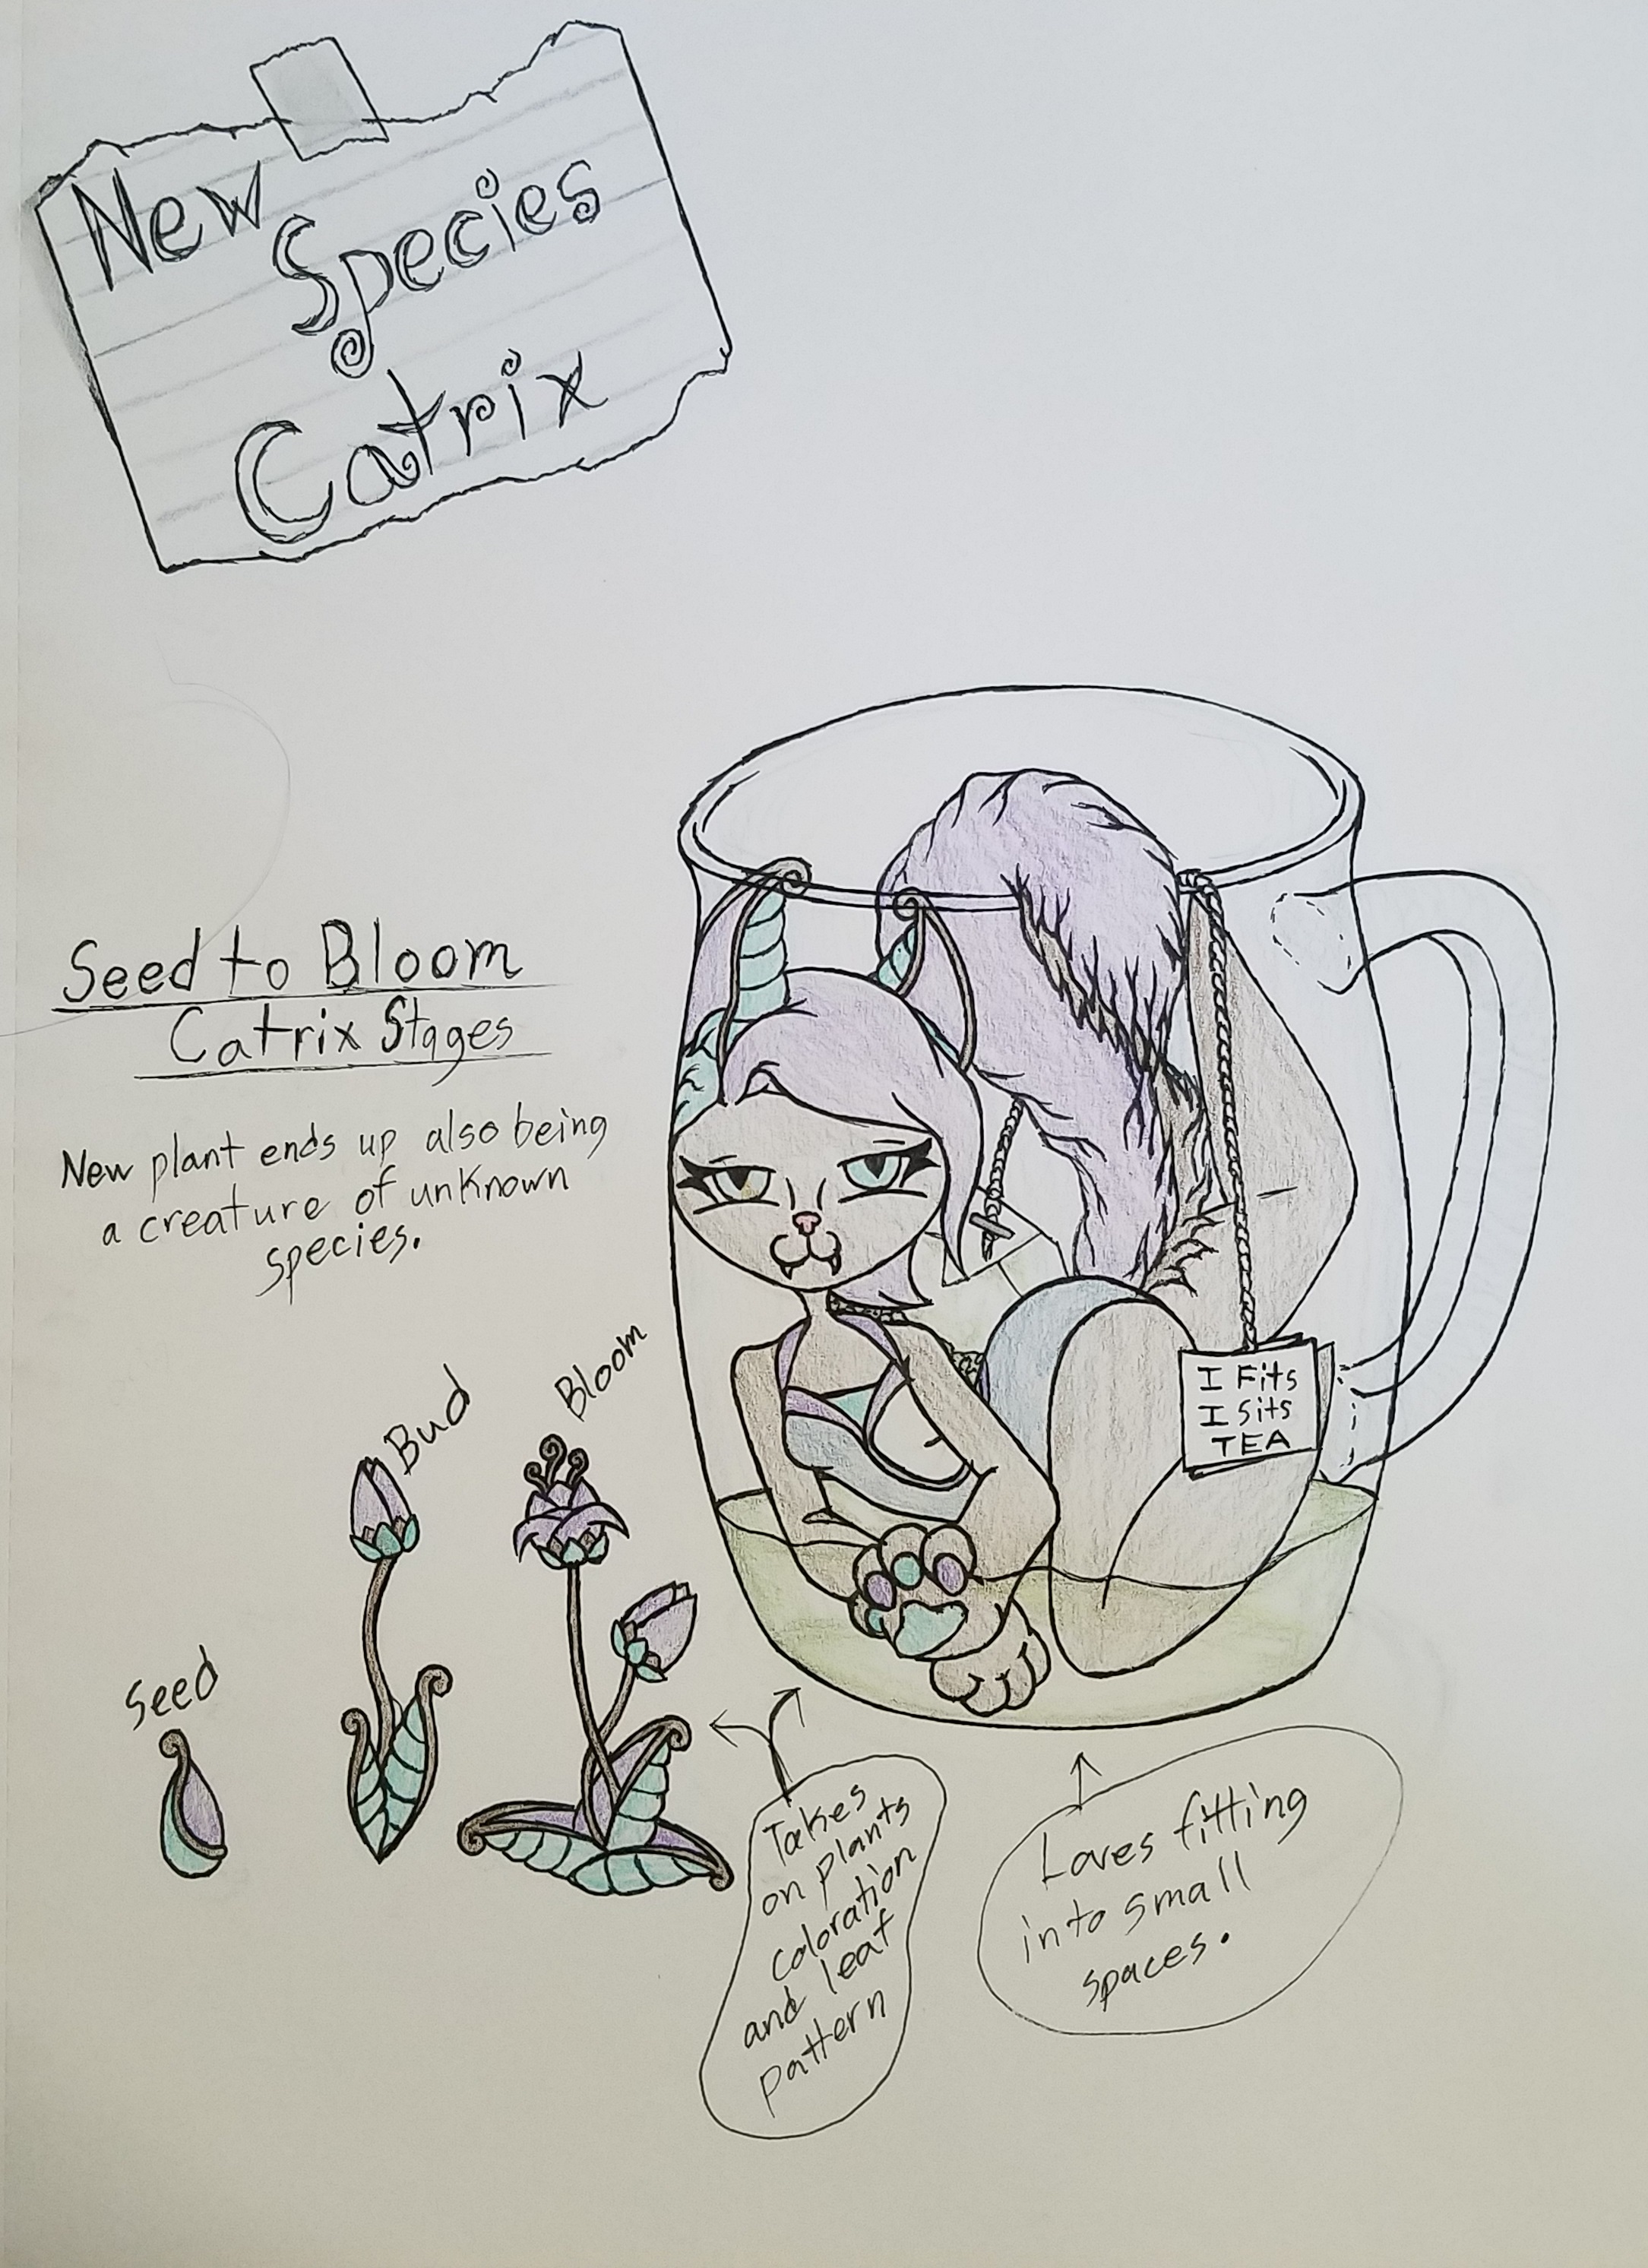 New
Species
Catrix
Seed to Bloom
Catrix Stages
New plant ends up also being
a creature of unknown
species.
Seed
Bud
Bloom
I Fits
I Sits
TEA
Takes
on plants
coloration
and leaf
pattern
Loves fitting
into small
spaces.